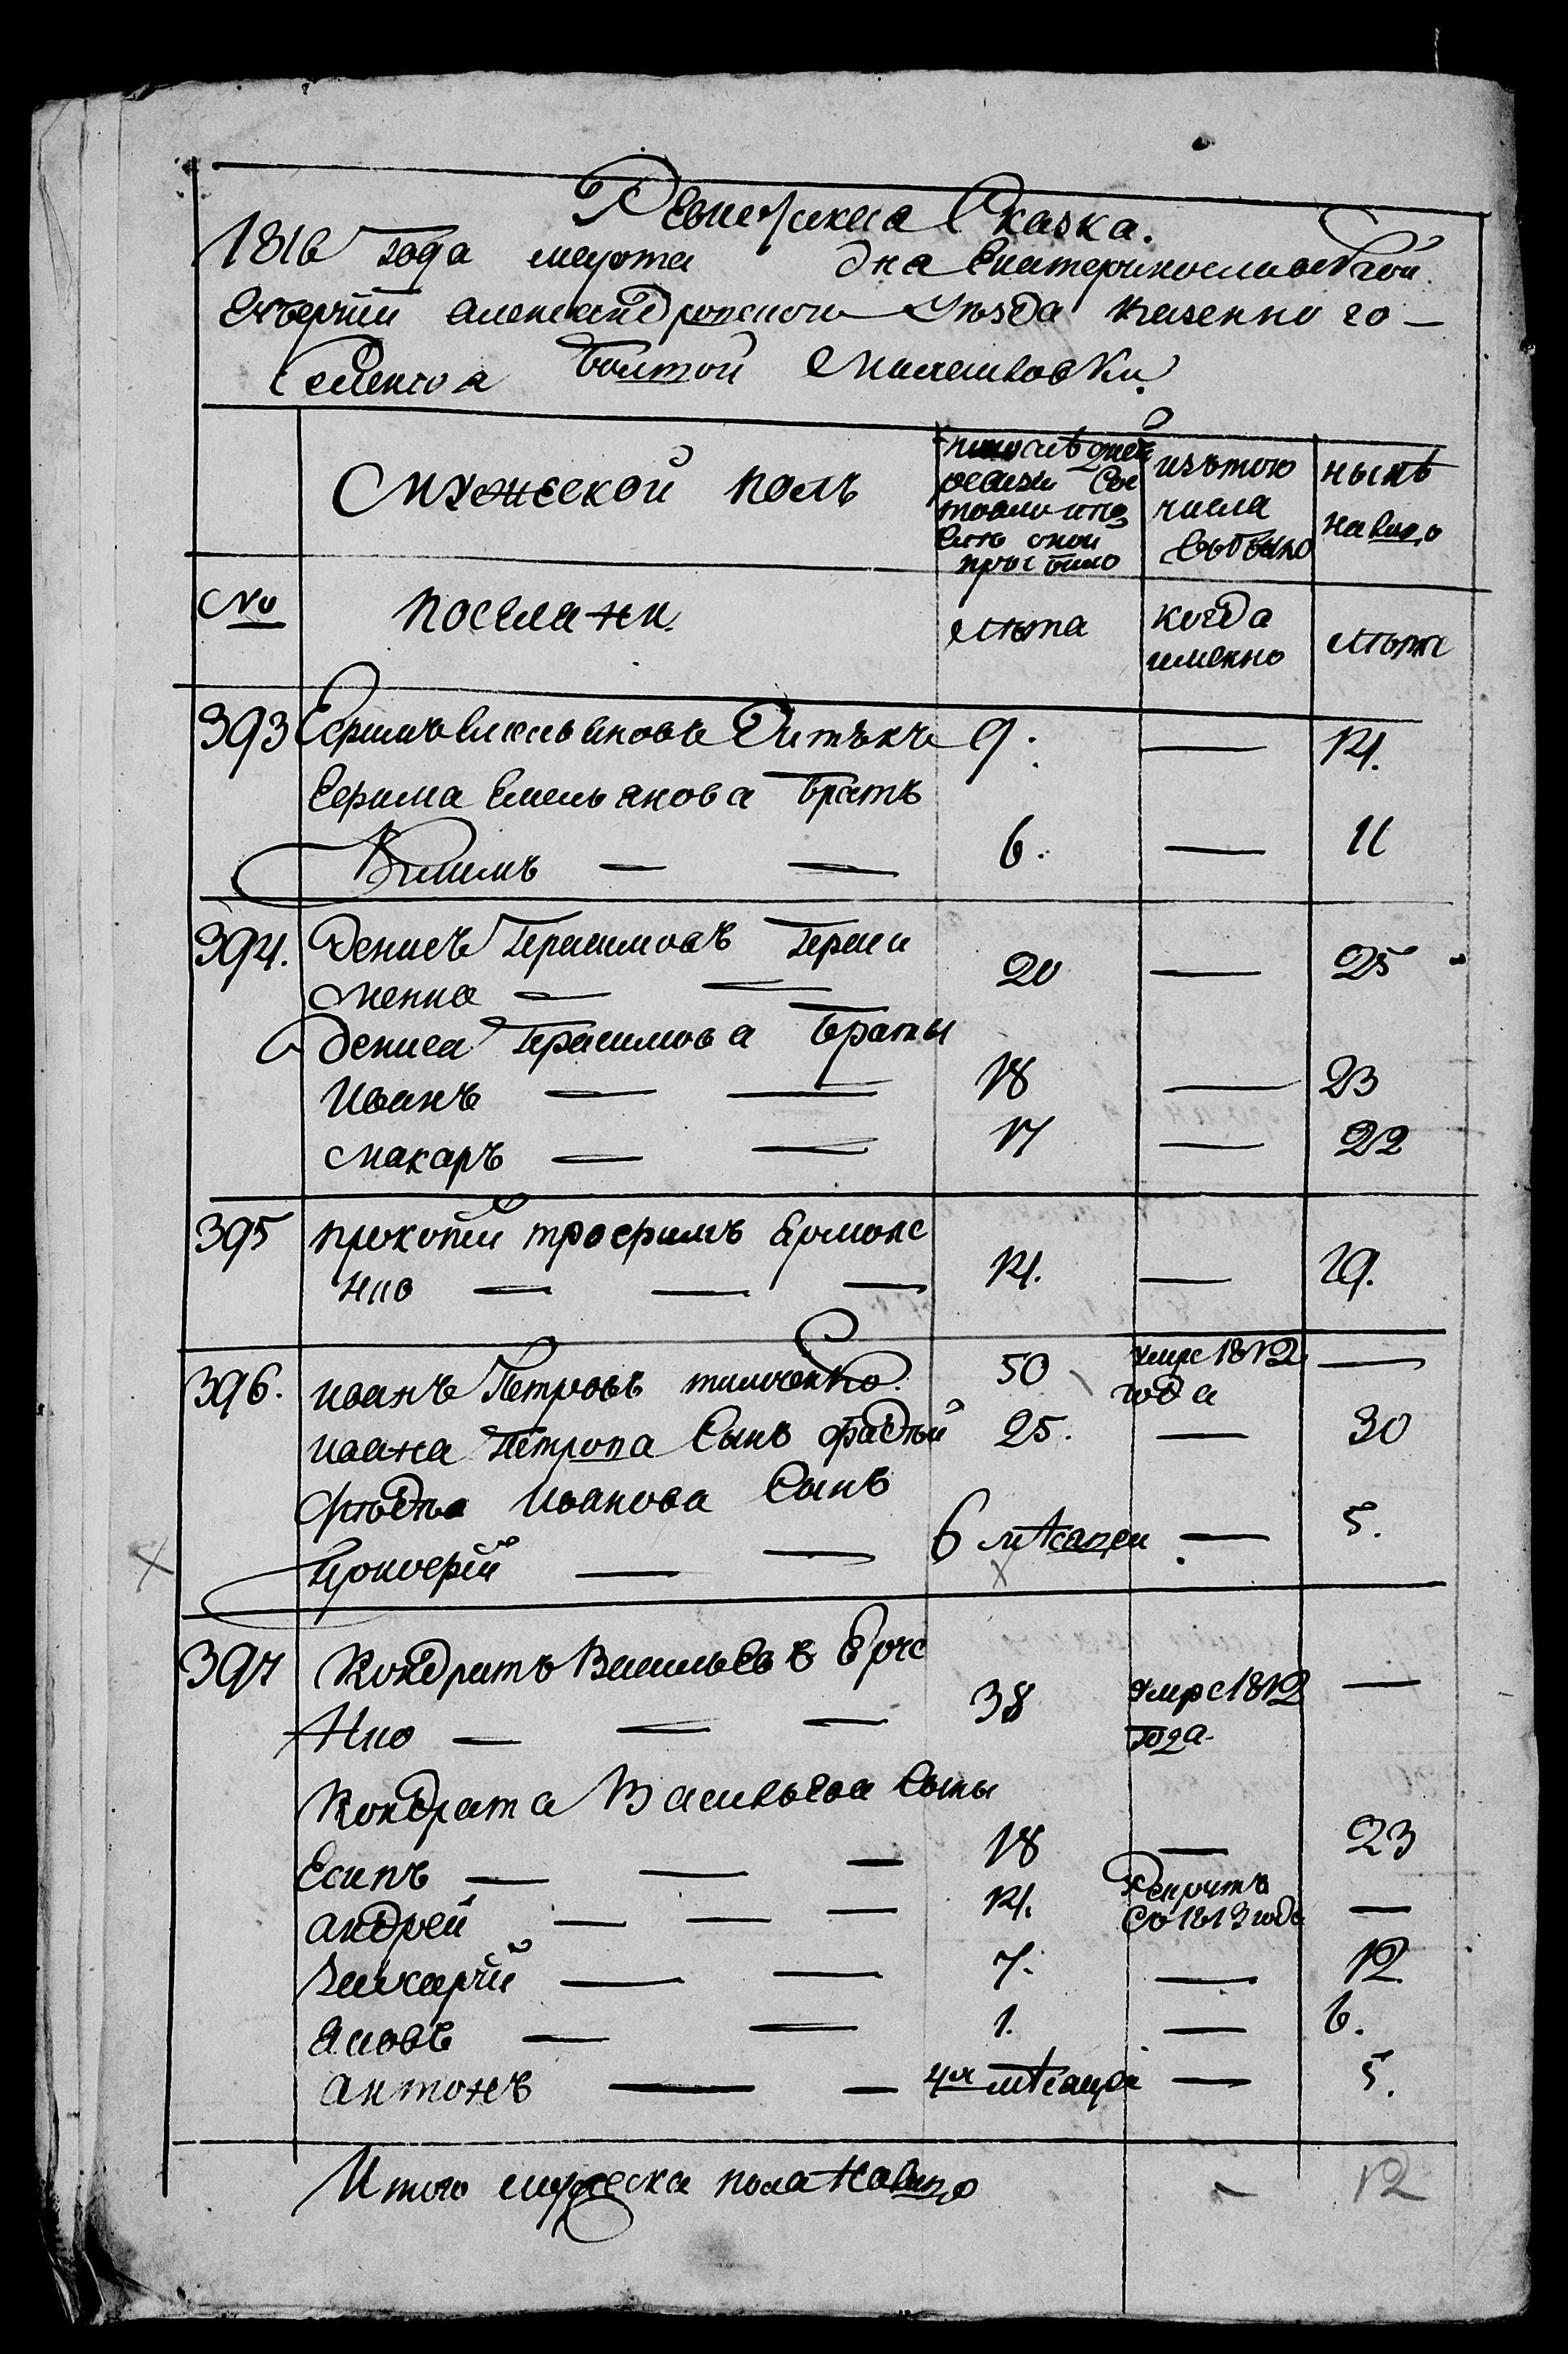 Ревизская Сказка.
1816 года марта дня Екатеринославской
Губернии александровского уезда казенного
Селения волтой
Мужеской полъ
последней ревизии состояло и после оной прибыло
изътого числа выбыло
нынѣ налицо
№ поселяни. лѣта когда именно лѣта
393 Ефимъ Емельяновъ 9. — 14.
Ефима Емельянова братъ
Климъ — — 6. — 11
394. Денисъ Герасимовъ Гераси
менко — — 20 — 25
Дениса Герасимова браты
Иванъ — — 18 — 23
макаръ — — 17 — 22
395 прокопий трофимъ Ярмоле
нко — — — 14. — 19.
396. иванъ Петровъ тимченко. 50 умре 1812 года —
ивана Петрова Сынъ фадѣй 25. — 30
фадѣя Иванова Сынъ
прокофей — — 6 мѣсяцеи — 5.
397 Кондратъ Васильевъ Ерче
нко — — — 38 умре 1812 года —
Кондрата Васильева Сыны
Есипъ — — — 18 — 23
андрей — — — 14. Рекрутъ Со 1813 года —
Захарий — — 7. — 12
Яковъ — — 1. — 6.
антонъ — — 4ʳᵉ мѣсяца — 5.
Итого мужеска пола Налицо - 12